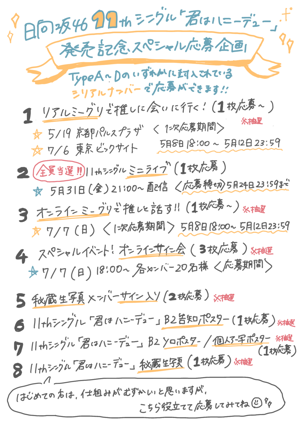 日向坂46 11thシングル「君はハニーデュー」
発売記念スペシャル応募企画
TypeA〜Dのいずれかに封入されている
シリアルナンバーで応募ができます!!
1 リアルミーグリで推しに会いに行く!(1枚応募〜)
※抽選
☆ 5/19 京都パルスプラザ <1次応募期間>
☆ 7/6 東京ビックサイト 5月8日18:00〜5月12日23:59
2 全員当選!! 11thシングルミニライブ(1枚応募)
☆ 5月31日(金)21:00〜配信 <応募締切5月24日23:59まで>
3 オンラインミーグリで推しと話す!!(1枚応募〜)
※抽選
☆ 7/7(日) <1次応募期間> 5月8日18:00〜5月12日23:59
4 スペシャルイベント!オンラインサイン会(3枚応募)※抽選
☆ 7/7(日)18:00〜 各メンバー20名様 <応募期間>
5 秘蔵生写真メンバーサイン入り(2枚応募)※抽選
6 11thシングル「君はハニーデュー」B2告知ポスター(1枚応募)※抽選
7 11thシングル「君はハニーデュー」B2ソロポスター/個人1字ポスター
※抽選 (1枚応募)
8 11thシングル「君はハニーデュー」秘蔵生写真(1枚応募)※抽選
はじめての方は、仕組みがむずかしいと思いますが、
こちら役立てて応募してみてね